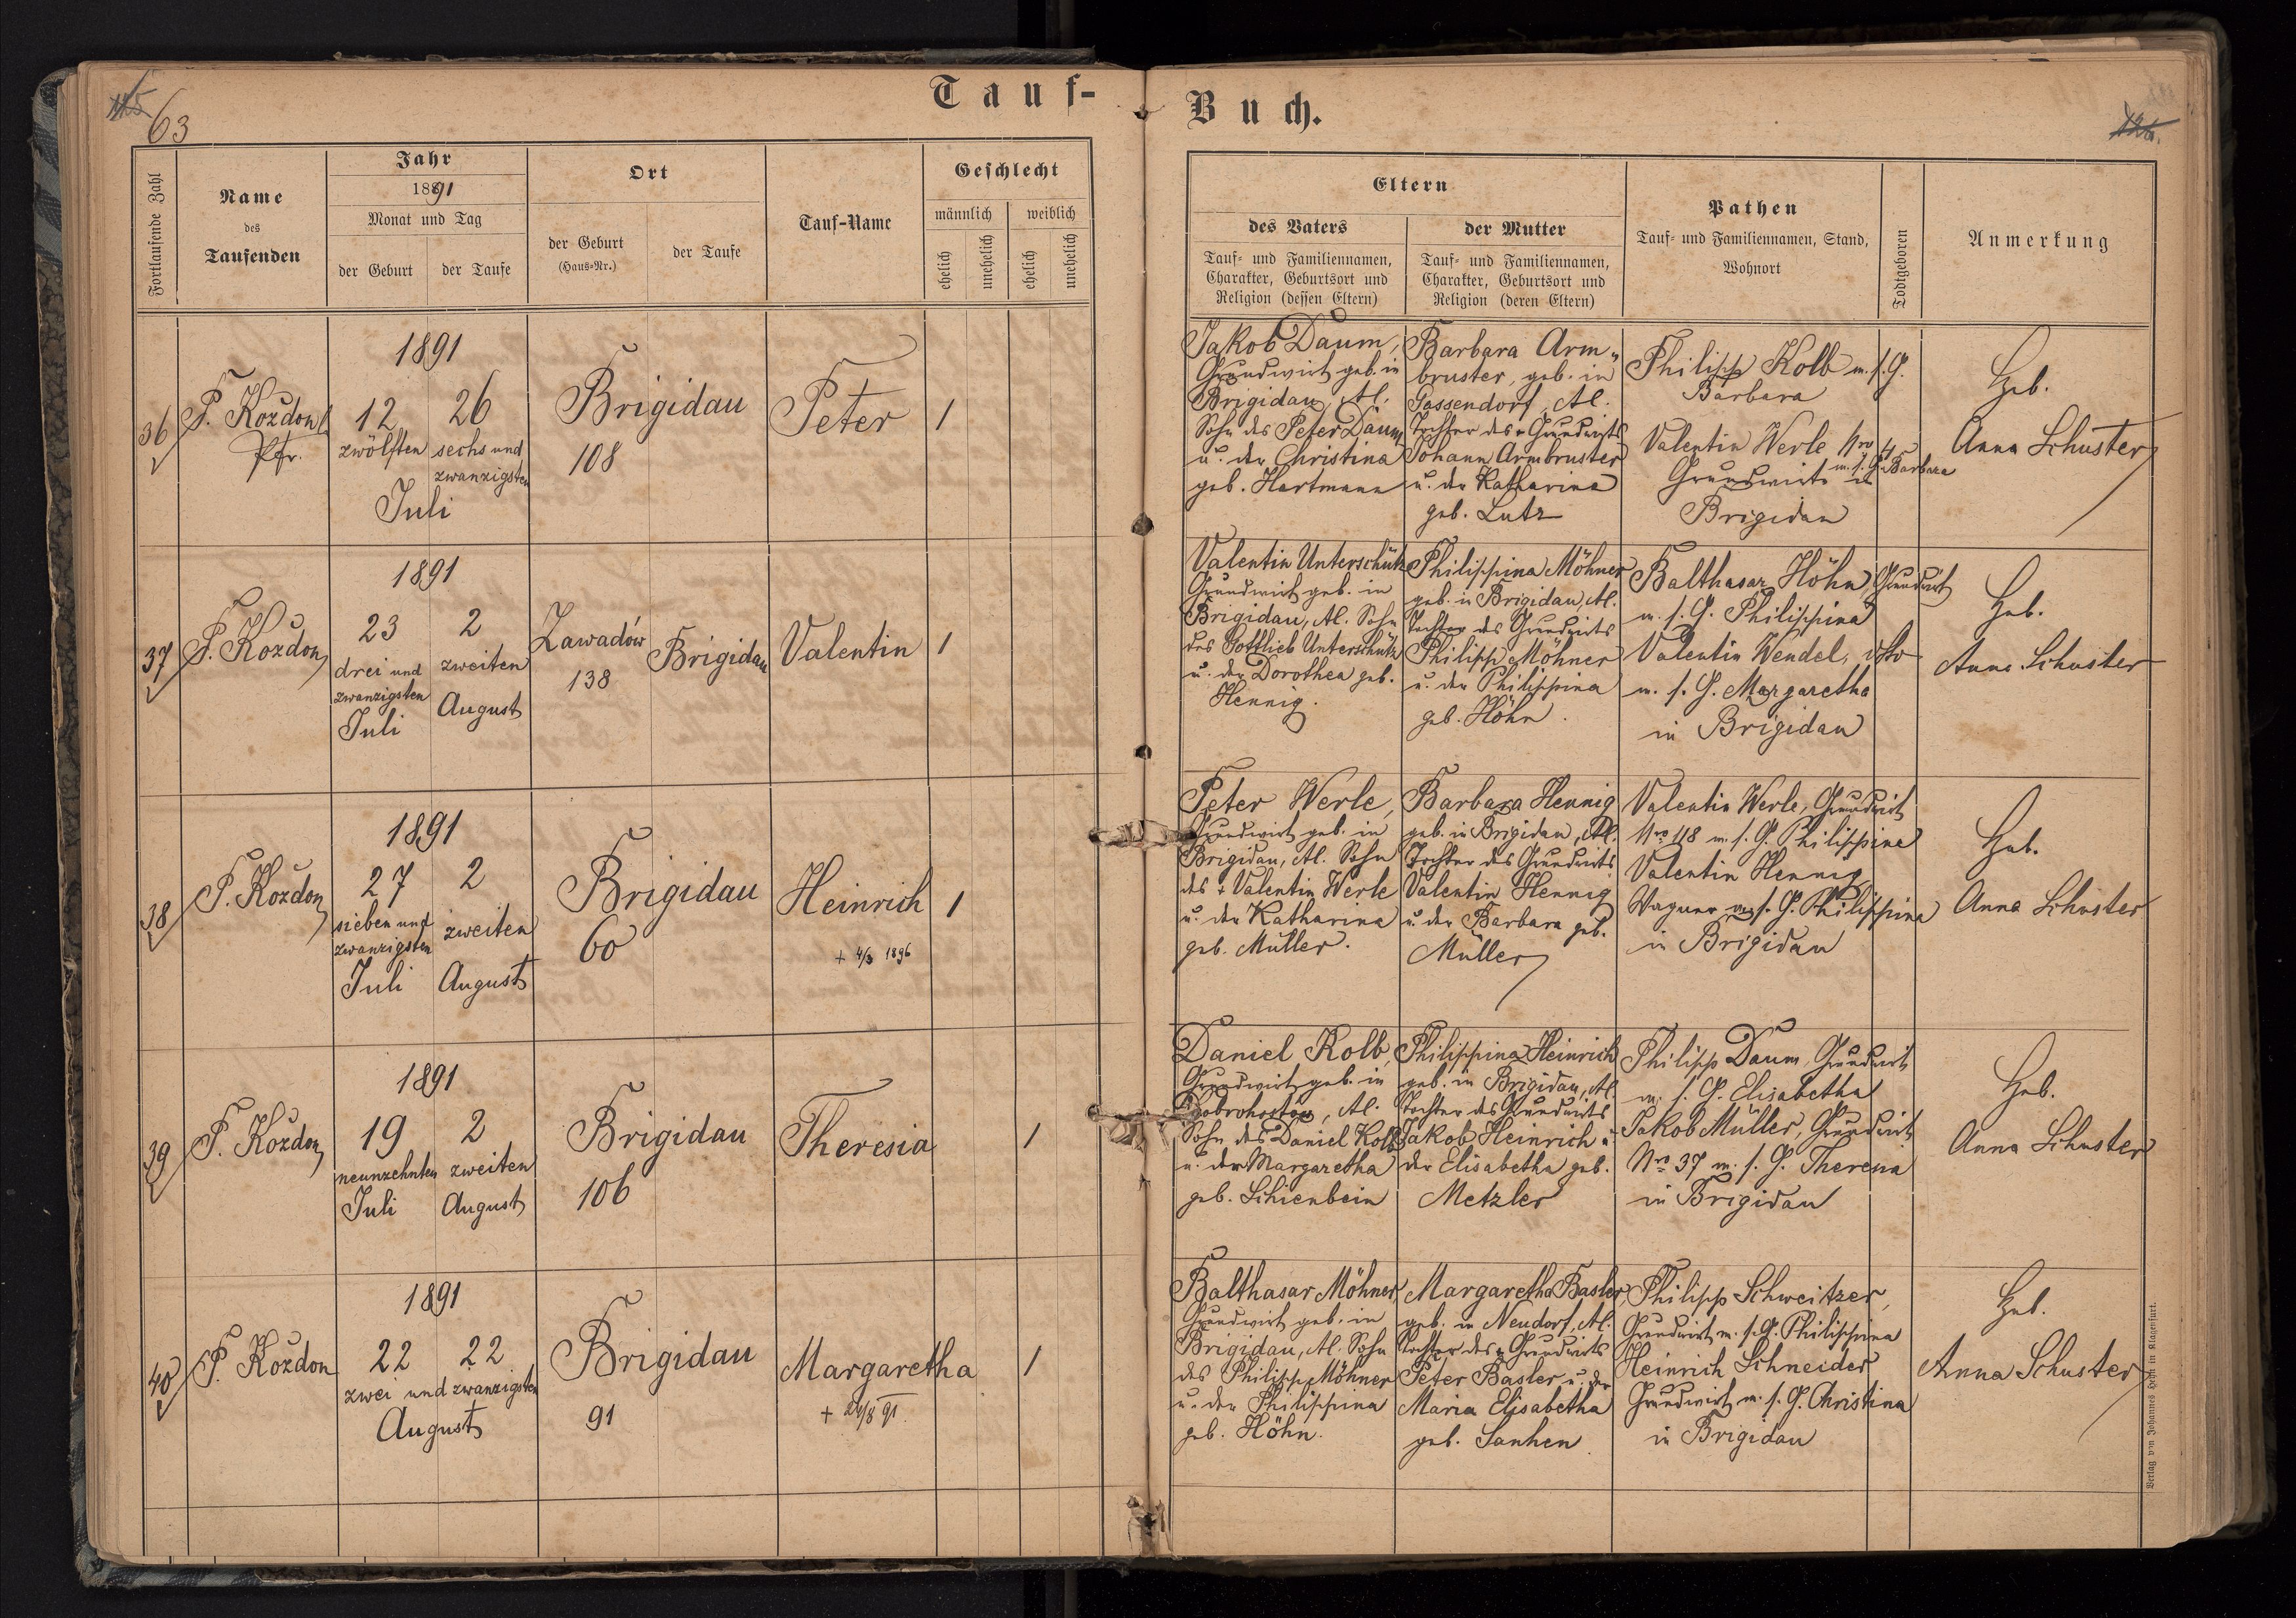 63
Tauf-
Buch.
Fortlaufende Zahl
Name
des
Taufenden
Jahr
1891
Monat und Tag
der Geburt
der Taufe
Ort
der Geburt
(Haus-Nr.)
der Taufe
Tauf-Name
Geschlecht
männlich
weiblich
ehelich
unehelich
ehelich
unehelich
Eltern
des Vaters
Tauf- und Familiennamen,
Charakter, Geburtsort und
Religion (dessen Eltern)
der Mutter
Tauf- und Familiennamen,
Charakter, Geburtsort und
Religion (deren Eltern)
Pathen
Tauf- und Familiennamen, Stand,
Wohnort
Todtgeboren
Anmerkung
36
P. Kozdon
Pfr.
1891
12
zwölften
26
sechs und
zwanzigsten
Juli
Brigidau
108
Peter
1
Jakob Daum,
Grundwirt geb. in
Brigidau, Al.
Sohn des Peter Daum
u. der Christina
geb. Hartmann
Barbara Arm„
bruster, geb. in
Gassendorf, Al.
Tochter des + Grundwirts
Johann Armbruster
u. der Katharina
geb. Lutz
Philipp Kolb m. s. G.
Barbara
Valentin Werle Nro 45
m. s. G. Barbara
Grundwirte in
Brigidau
Heb.
Anna Schuster
37
P. Kozdon
1891
23
drei und
zwanzigsten
Juli
2
zweiten
August
Zawadów
138
Brigidau
Valentin
1
Valentin Unterschütz
Grundwirt geb. in
Brigidau, Al. Sohn
des Gottlieb Unterschütz
u. der Dorothea geb.
Hennig.
Philippina Möhner
geb. in Brigidau, Al.
Tochter des Grundwirts
Philipp Möhner
u. der Philippina
geb. Höhn.
Balthasar Höhn, Grundwirt
m. s. G. Philippina
Valentin Wendel, dto
m. s. G. Margaretha
in Brigidau
Heb.
Anna Schuster
38
P. Kozdon
1891
27
sieben und
zwanzigsten
Juli
2
zweiten
August
Brigidau
60
Heinrich
+ 4/3 1896
1
Peter Werle,
Grundwirt geb. in
Brigidau, Al. Sohn
des + Valentin Werle
u. der Katharina
geb. Müller.
Barbara Hennig
geb. in Brigidau, Al.
Tochter des Grundwirts
Valentin Hennig
u. der Barbara geb.
Müller
Valentin Werle, Grundwirt
Nro 118 m. s. G. Philippina
Valentin Hennig,
Wagner m. s. G. Philippina
in Brigidau
Heb.
Anna Schuster
39
P. Kozdon
1891
19
neunzehnten
Juli
2
zweiten
August
Brigidau
106
Theresia
1
Daniel Kolb,
Grundwirt geb. in
Dobrohostów, Al.
Sohn des Daniel Kolb
u. der Margaretha
geb. Schienbein
Philippina Heinrich
geb. in Brigidau, Al.
Tochter des Grundwirts
Jakob Heinrich u.
der Elisabetha geb.
Metzler
Philipp Daum, Grundwirt
m. s. G. Elisabetha
Jakob Müller, Grundwirt
Nro 37 m. s. G. Theresia
in Brigidau
Heb.
Anna Schuster
40
P. Kozdon
1891
22
22
zwei und zwanzigsten
August
Brigidau
91
Margaretha
+ 24/8 91.
1
Balthasar Möhner,
Grundwirt geb. in
Brigidau, Al. Sohn
des Philipp Möhner
u. der Philippina
geb. Höhn.
Margaretha Basler
geb. in Neudorf, Al.
Tochter des + Grundwirts
Peter Basler u. der
Maria Elisabetha
geb. Sanhen.
Philipp Schweitzer,
Grundwirt m. s. G. Philippina
Heinrich Schneider
Grundwirt m. s. G. Christina
in Brigidau
Heb.
Anna Schuster
Verlag von Johannes Heyn in Klagenfurt.